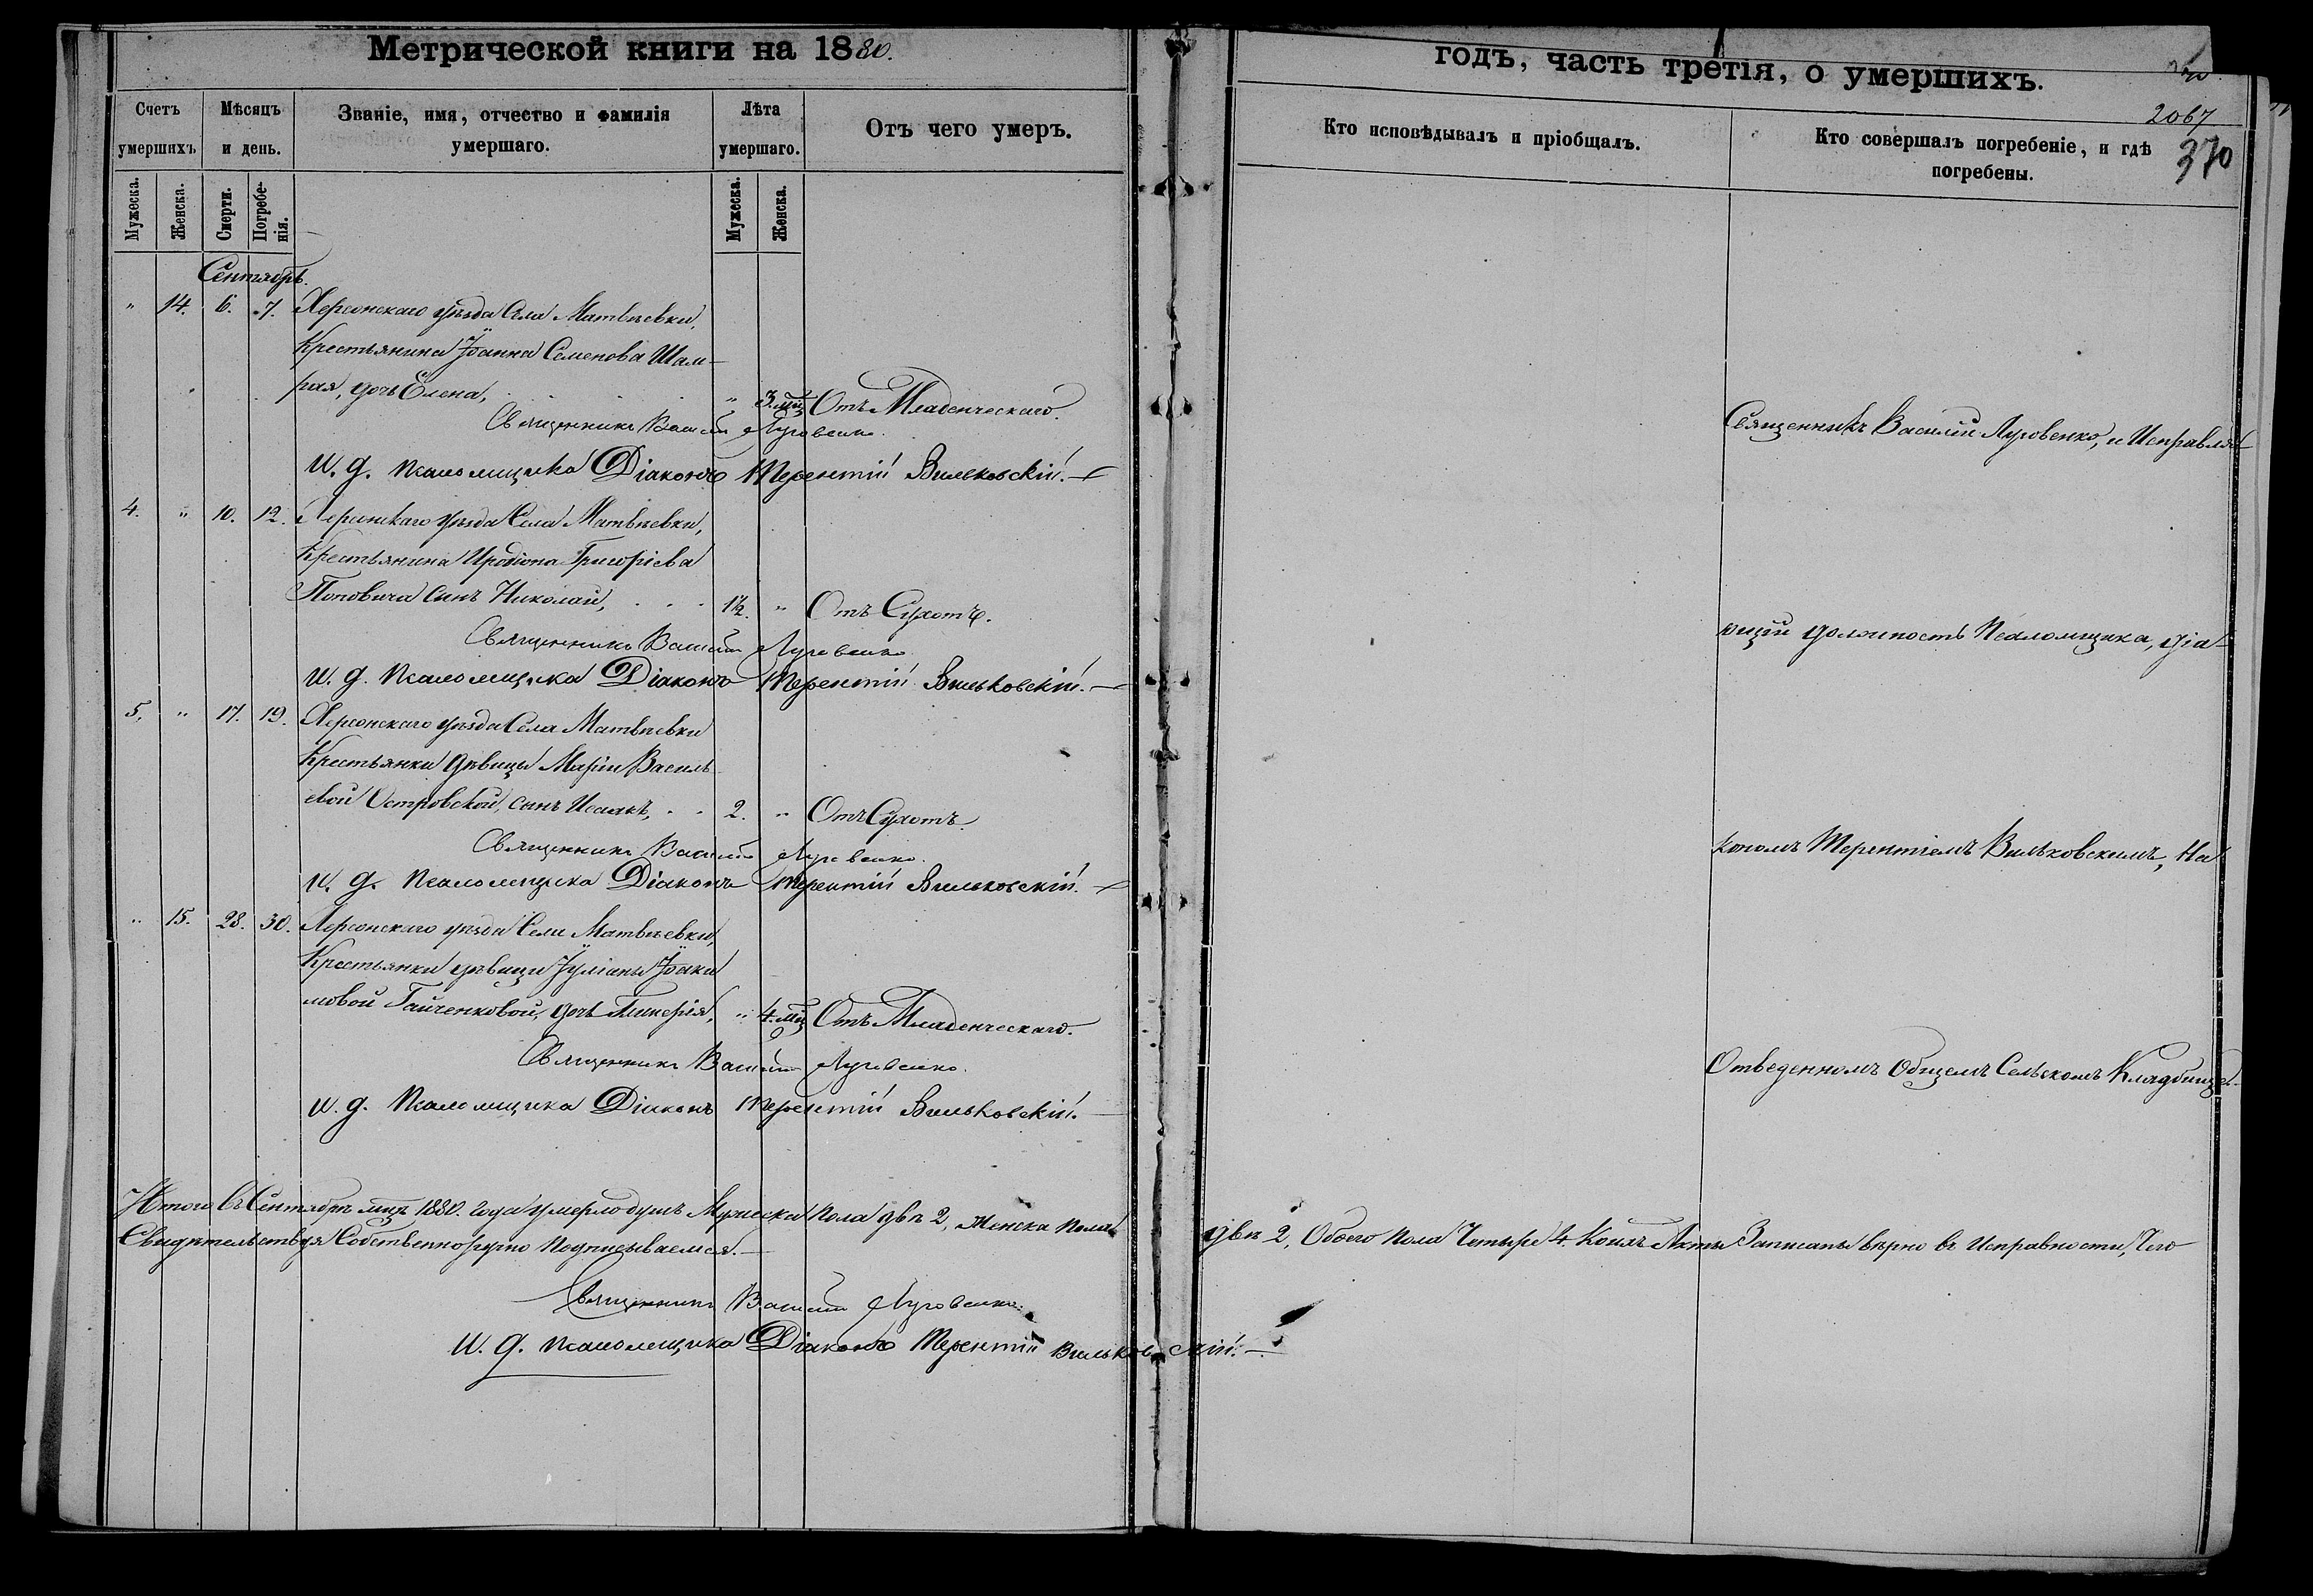 Метрической книги на 1880.
годъ, часть третія, о умершихъ.
2067
370
Счетъ умершихъ.
Мѣсяцъ и день.
Званіе, имя, отчество и фамилія умершаго.
Лѣта умершаго.
Отъ чего умеръ.
Кто исповѣдывалъ и пріобщалъ.
Кто совершалъ погребеніе, и гдѣ погребены.
Мужеска.
Женска.
Смерти.
Погребе-
нія.
Мужеска.
Женска.
Сентябрь.
" 14. 6. 7. Херсонскаго уѣзда Села Матвѣевки,
Крестьянина Іоанна Семенова Шам-
рая, дочь Елена, " 3 мц Отъ Младенческаго.
Священникъ Василій Луговенко.
И. д. псаломщика Діаконъ Терентій Вильковскій.
4. " 10. 12. Херсонскаго уѣзда Села Матвѣевки,
Крестьянина Иродіона Григоріева
Поповича сынъ Николай, 1½. " Отъ Сухотъ.
Священникъ Василій Луговенко
И. д. псаломщика Діаконъ Терентій Вильковскій.
5. " 17. 19. Херсонскаго уѣзда Села Матвѣевки
Крестьянки дѣвицы Маріи Василь
евой Островской, сынъ Исаакъ, 2. " Отъ Сухотъ.
Священникъ Василій Луговенко.
И. д. псаломщика Діаконъ Терентій Вильковскій.
" 15. 28. 30. Херсонскаго уѣзда Села Матвѣевки,
Крестьянки дѣвицы Іуліаны Іоаки
мовой Гайченковой, дочь Гликерія, " 4. мц Отъ Младенческаго.
Священникъ Василій Луговенко.
И. д. псаломщика Діаконъ Терентій Вильковскій.
Священникъ Василій Луговенко, и Исправля-
ющій должность Псаломщика, Діа-
кономъ Терентіемъ Вильковскимъ, На
Отведенномъ Общемъ Сельскомъ Кладбищѣ.
Итого въ Сентябрѣ мцѣ 1880. года умерло душъ Мужеска пола двѣ 2, Женска пола двѣ 2, Обоего пола Четыре 4. Коихъ Акты Записаны вѣрно въ Исправности, Чего
Свидѣтельствуя Собственноручно Подписываемся.
Священникъ Василій Луговенко.
И. д. псаломщика Діаконъ Терентій Вильковскій.